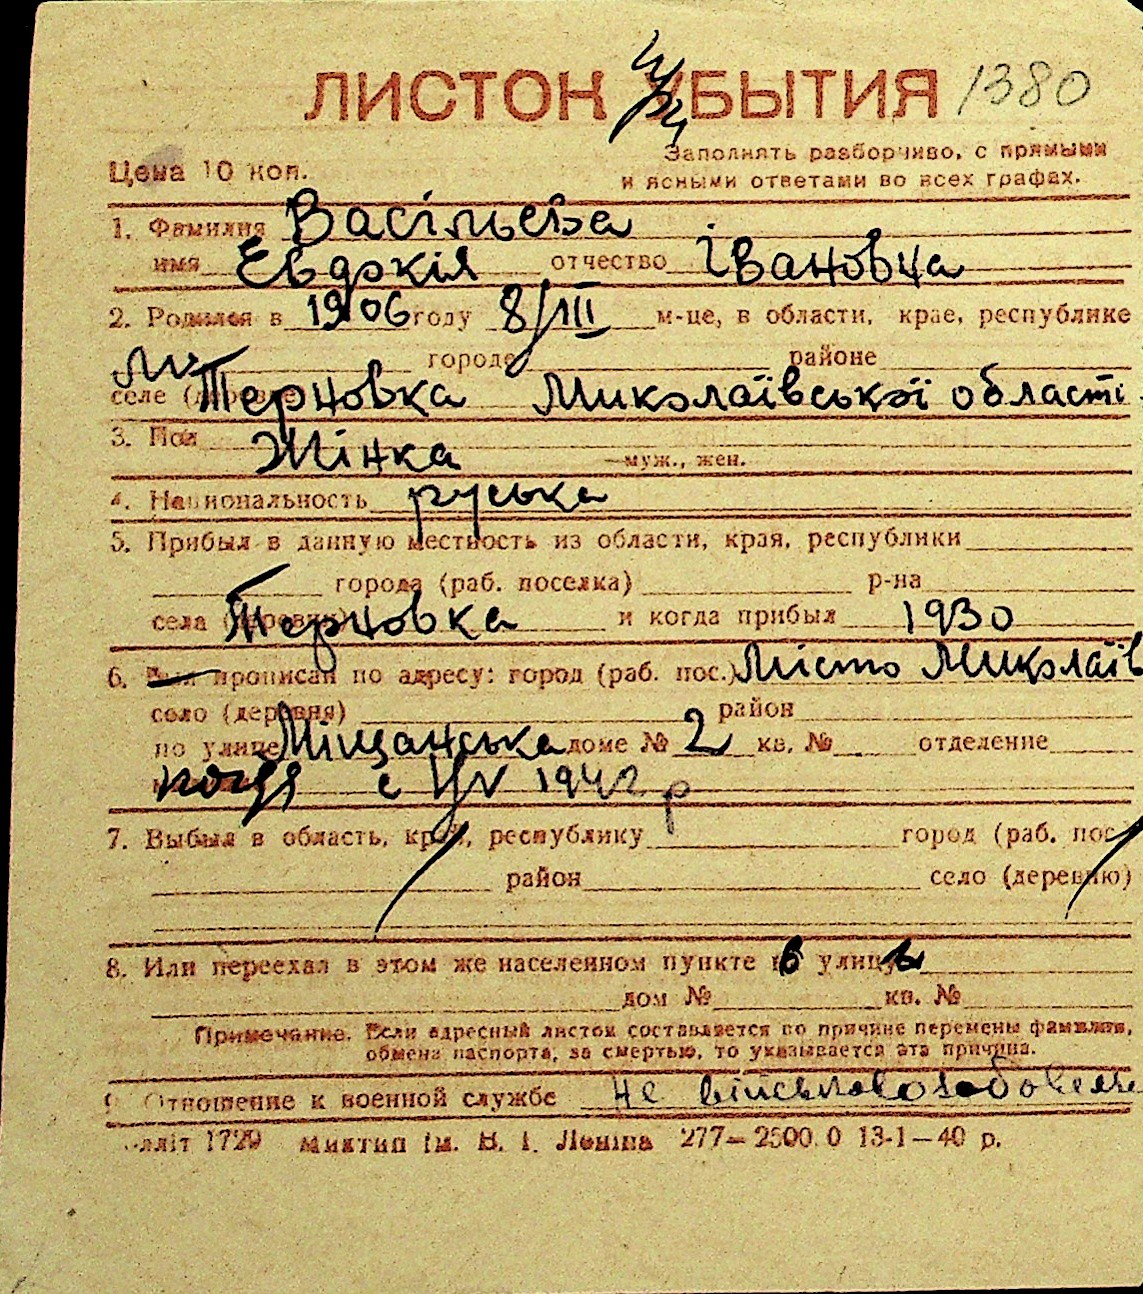 ЛИСТОК УБЫТИЯ 1380
Цена 10 коп.
Заполнять разборчиво, с прямыми
и ясными ответами во всех графах.
1. Фамилия Васільєва
имя Евдокія отчество Івановна
2. Родился в 1906 году 8/III м-це, в области, крае, республике
городе районе
селе (деревне) Терновка Миколаївської області
3. Пол Жінка муж., жен.
4. Национальность руська
5. Прибыл в данную местность из области, края, республики
города (раб. поселка) р-на
села (деревни) Терновка и когда прибыл 1930
6. Был прописан по адресу: город (раб. пос.) Місто Миколаїв
село (деревня) район
по улице Міщанська доме № 2 кв. № отделение
1942 р
7. Выбыл в область, край, республику город (раб. пос
район село (деревню)
8. Или переехал в этом же населенном пункте в улицу
дом № кв. №
Примечание. Если адресный листок составляется по причине перемены фамилии,
обмена паспорта, за смертью, то указывается эта причина.
9. Отношение к военной службе не
1729 Миктип ім. В. І. Леніна 277—2500.0 13-1—40 р.